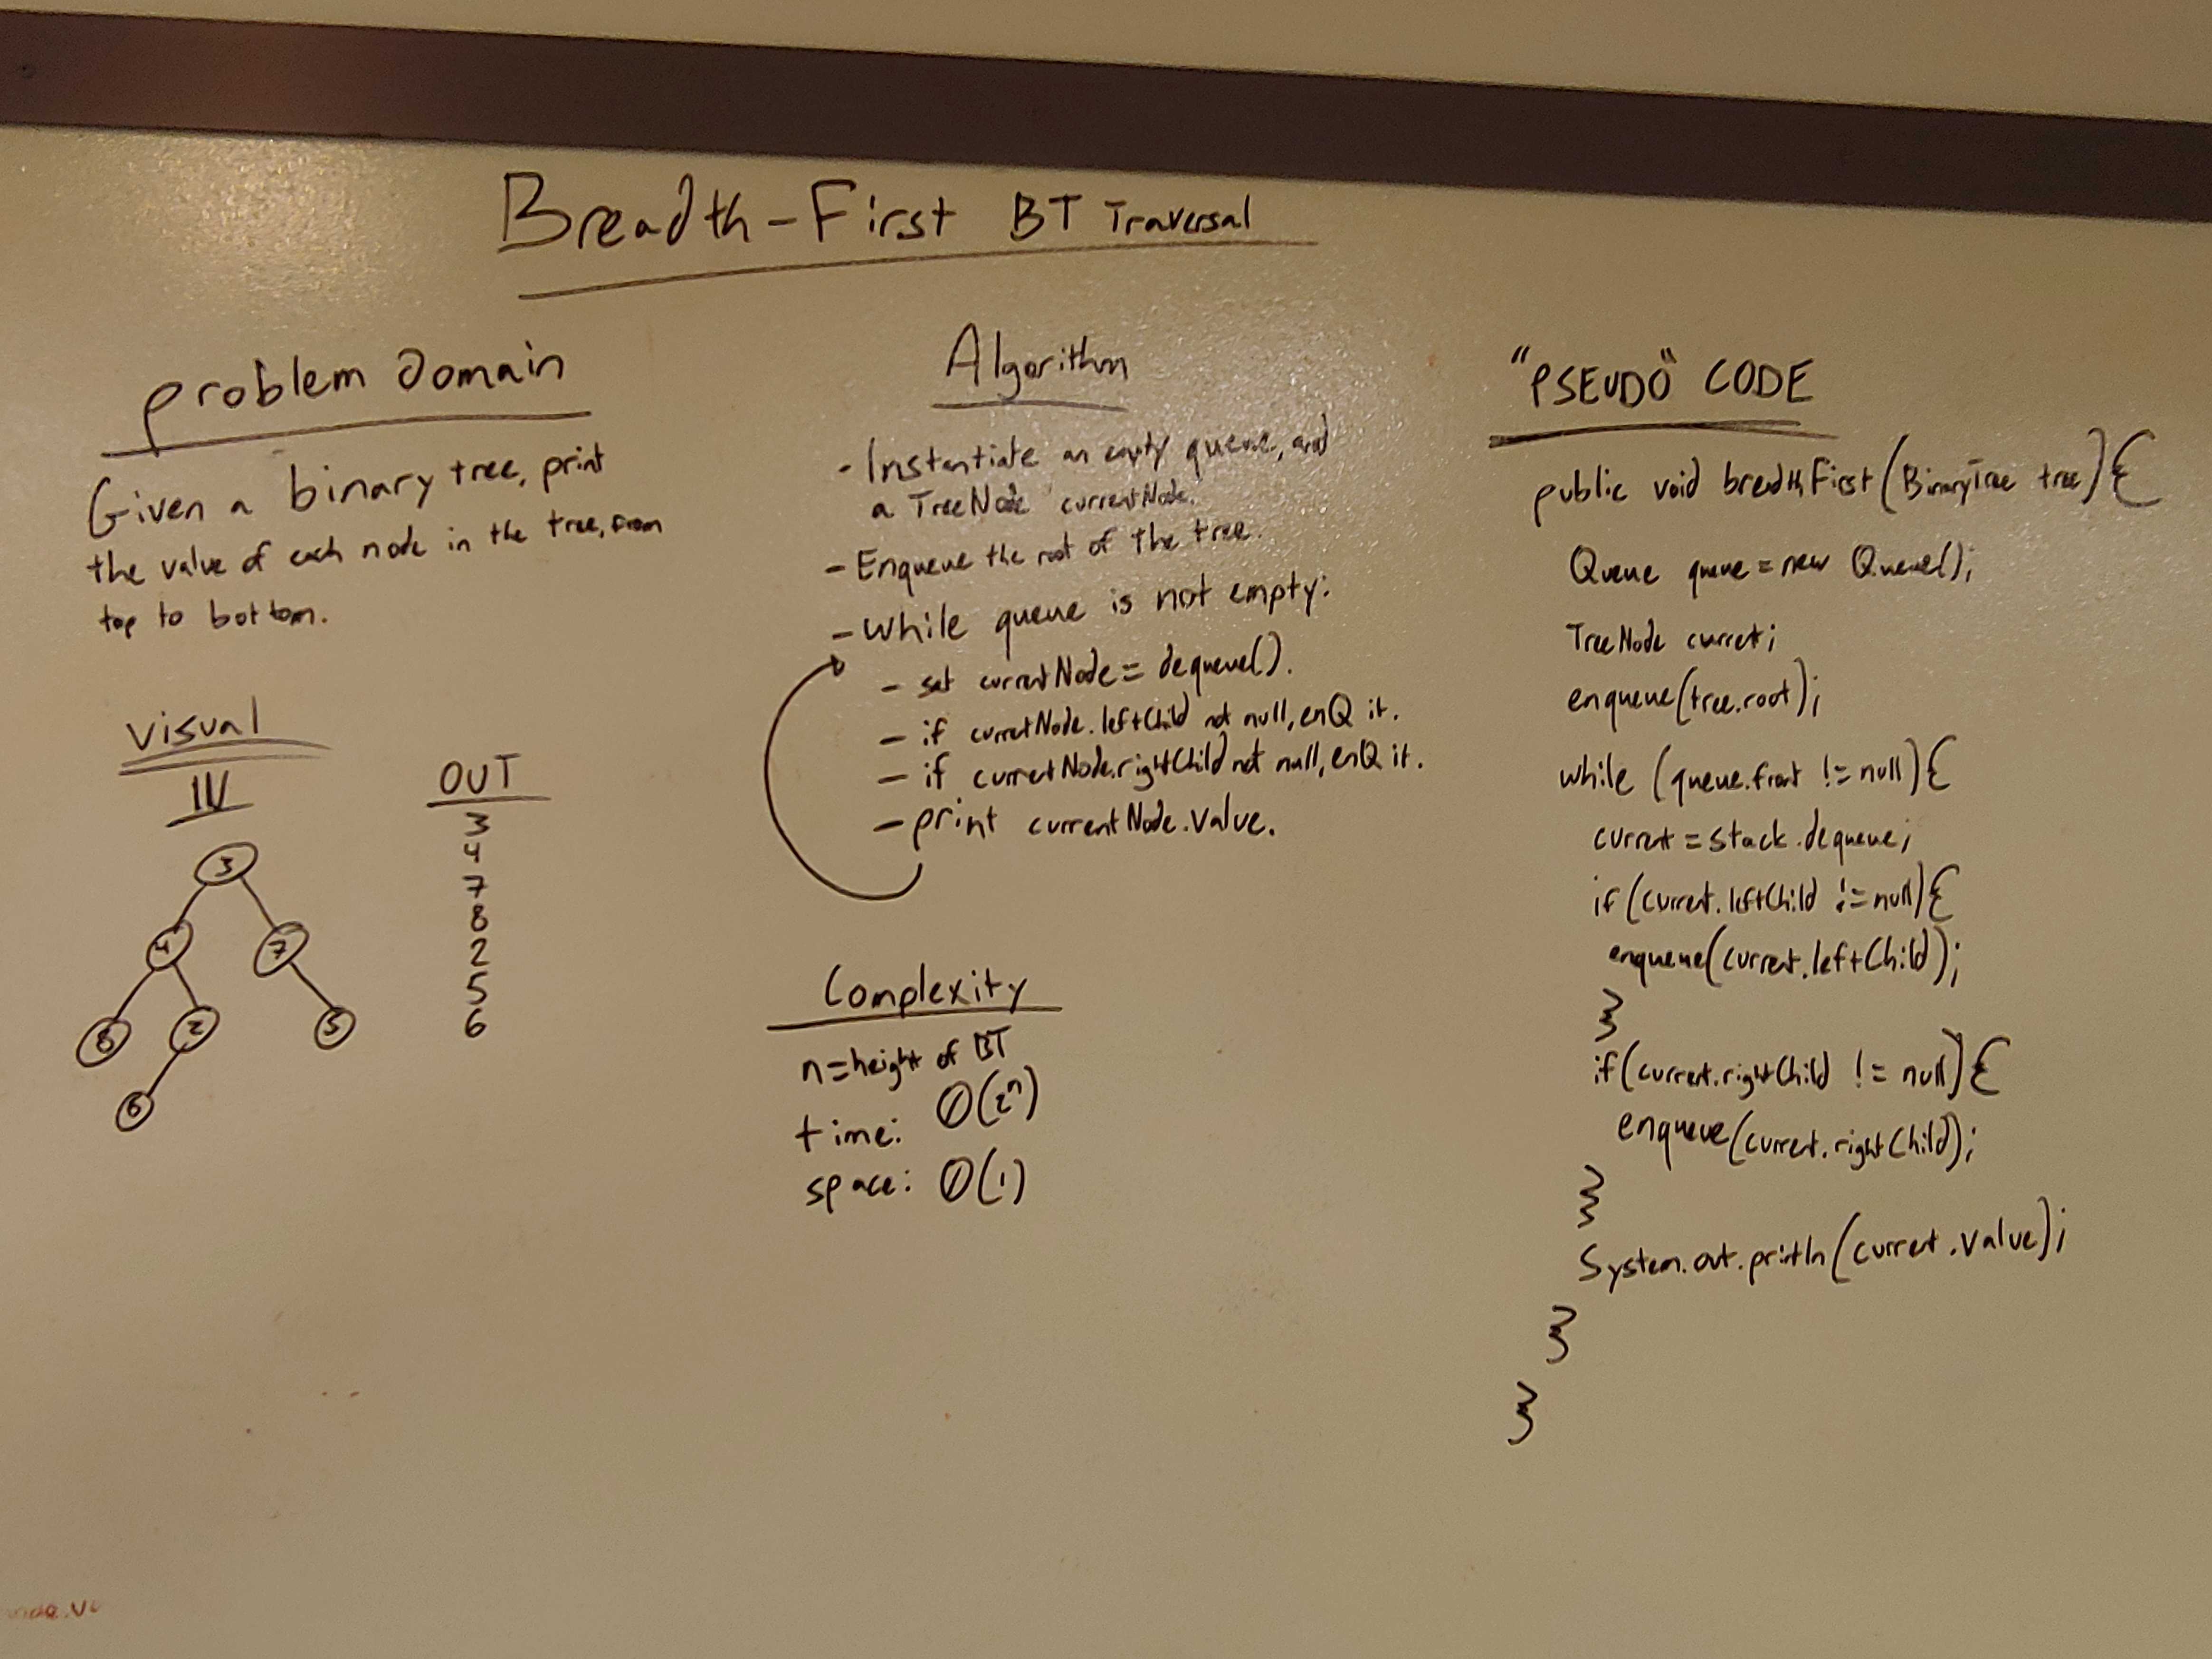 Breadth-First BT Traversal
problem domain
Given a binary tree, print
the value of each node in the tree, from
top to bottom.
Visual
IN
3
4 7
8 2 5
6
OUT
3
4
7
8
2
5
6
Algorithm
- Instantiate an empty queue, and
a TreeNode currentNode.
- Enqueue the root of the tree.
- While queue is not empty:
- set currentNode = dequeue().
- if currentNode.leftChild not null, enQ it.
- if currentNode.rightChild not null, enQ it.
- print currentNode.value.
Complexity
n = height of BT
time: O(2ⁿ)
space: O(1)
"PSEUDO" CODE
public void breadthFirst(BinaryTree tree){
Queue queue = new Queue();
TreeNode current;
enqueue(tree.root);
while (queue.front != null){
current = stack.dequeue;
if (current.leftChild != null){
enqueue(current.leftChild);
}
if (current.rightChild != null){
enqueue(current.rightChild);
}
System.out.println(current.value);
}
}